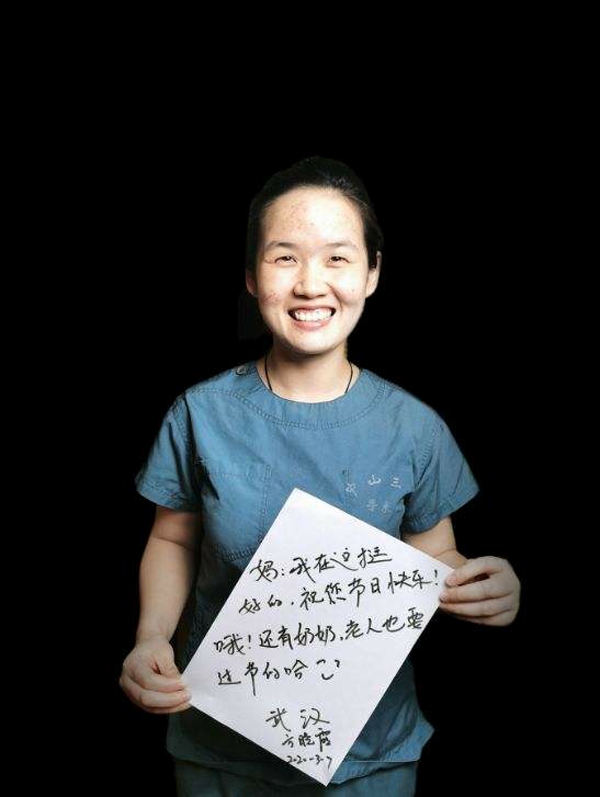 妈:我在这挺
好的,祝您节日快乐!
哦!还有奶奶,老人也要
过节的哈
武汉
2020-3-7